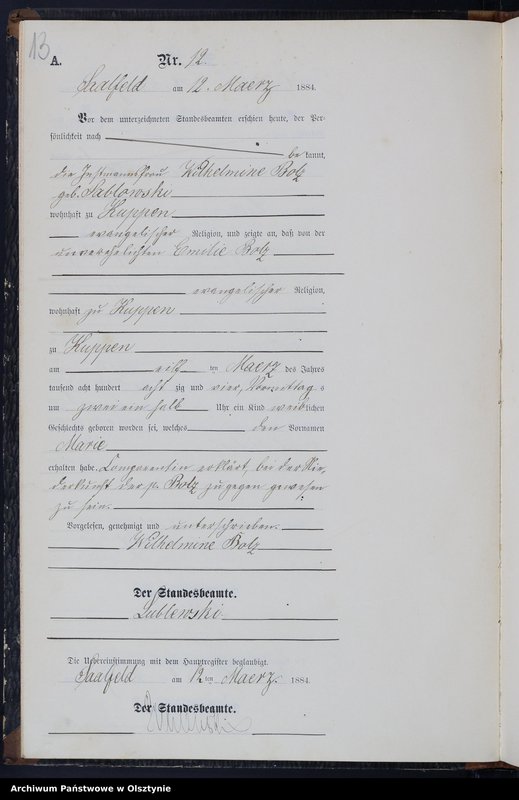 13
A.
Nr. 12.
Saalfeld am 12. Maerz 1884.
Vor dem unterzeichneten Standesbeamten erschien heute, der Per-
sönlichkeit nach
be kannt,
die Instmannsfrau Wilhelmine Bolz
geb. Sablowski
wohnhaft zu Kuppen
evangelischer Religion, und zeigte an, daß von der
unverehelichten Emilie Bolz
evangelischer Religion,
wohnhaft zu Kuppen
zu Kuppen
am ten Maerz des Jahres
tausend acht hundert acht zig und vier, Vormittag s
um zwei ein halb Uhr ein Kind weib lichen
Geschlechts geboren worden sei, welches den Vornamen
Marie
erhalten habe. Comparentin erklärt, bei der Nie-
derkunft der p. Bolz zugegen gewesen
zu sein.
Vorgelesen, genehmigt und unterschrieben.
Wilhelmine Bolz
Der Standesbeamte.
Lublewski
Die Uebereinstimmung mit dem Hauptregister beglaubigt.
Saalfeld am 12 ten Maerz 1884.
Der Standesbeamte.
Archiwum Państwowe w Olsztynie